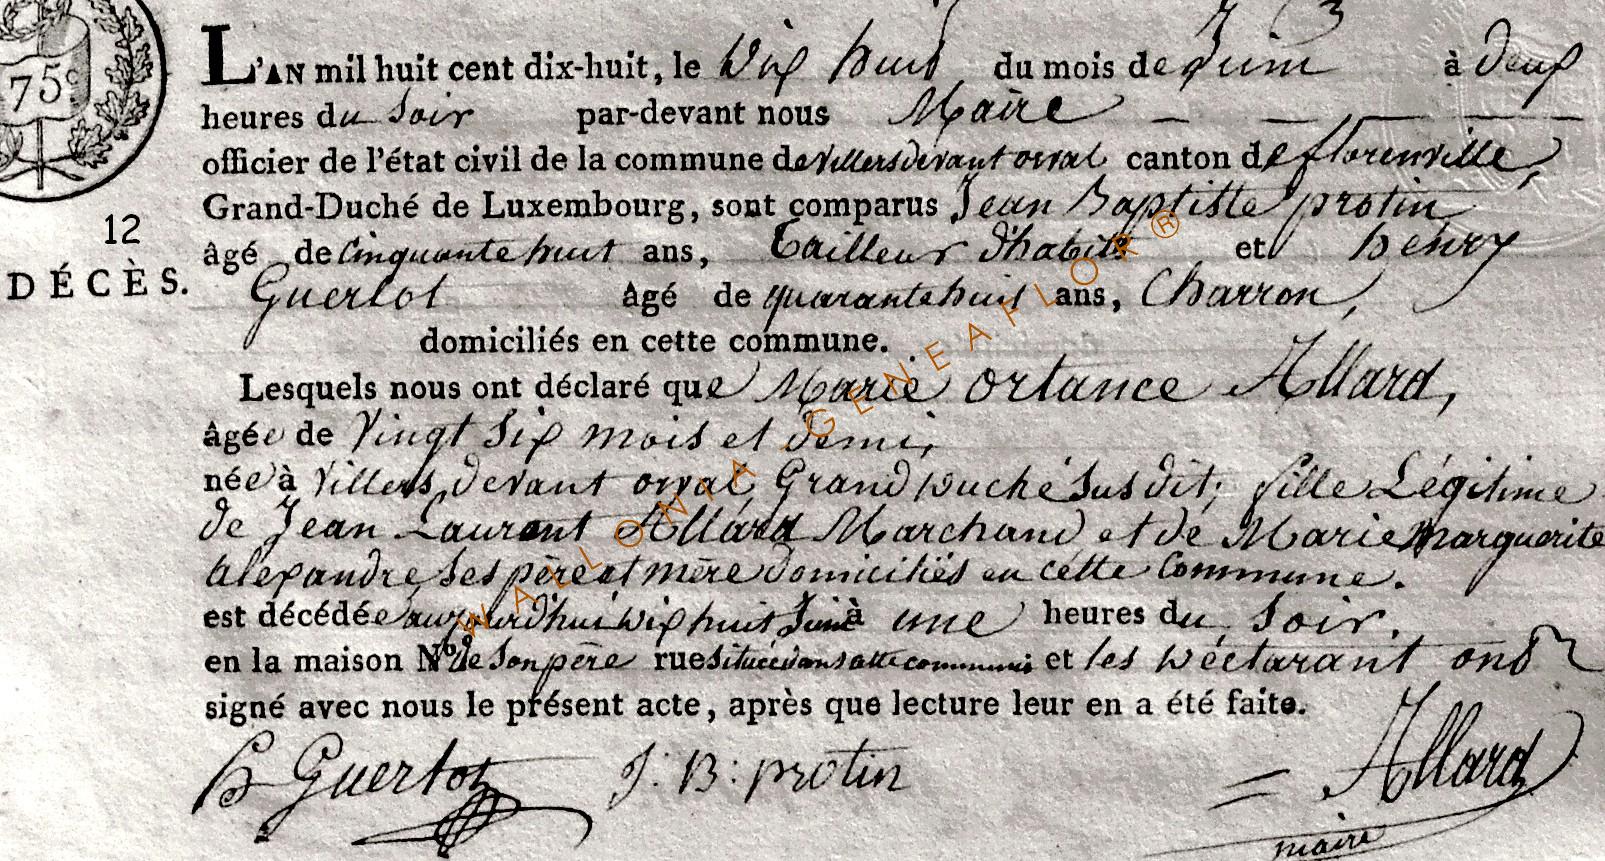 75c
L'AN mil huit cent dix-huit, le Dix huit du mois de Juin à deux
heures du Soir par-devant nous Maire
officier de l'état civil de la commune de villers devant orval canton de florenville,
Grand-Duché de Luxembourg, sont comparus Jean Baptiste protin
âgé de Cinquante huit ans, Tailleur d'habits et henry
12
DÉCÈS.
Guerlot âgé de quarante huit ans, Charron,
domiciliés en cette commune.
Lesquels nous ont déclaré que Marie ortance Allard,
âgée de Vingt Six mois et demi,
née à Villers devant orval Grand Duché Susdit, fille Légitime
de Jean Laurent Allard Marchand et de Marie Marguerite
Alexandre Ses père et mère domiciliés en cette Commune.
est décédée aujourd'hui Dix huit Juin à une heures du Soir.
en la maison No de Son père rue située dans cette commune et les Déclarant ont
signé avec nous le présent acte, après que lecture leur en a été faite.
h Guerlot J : B : protin Allard
maire
WALLONIA GENEAFLOR ®